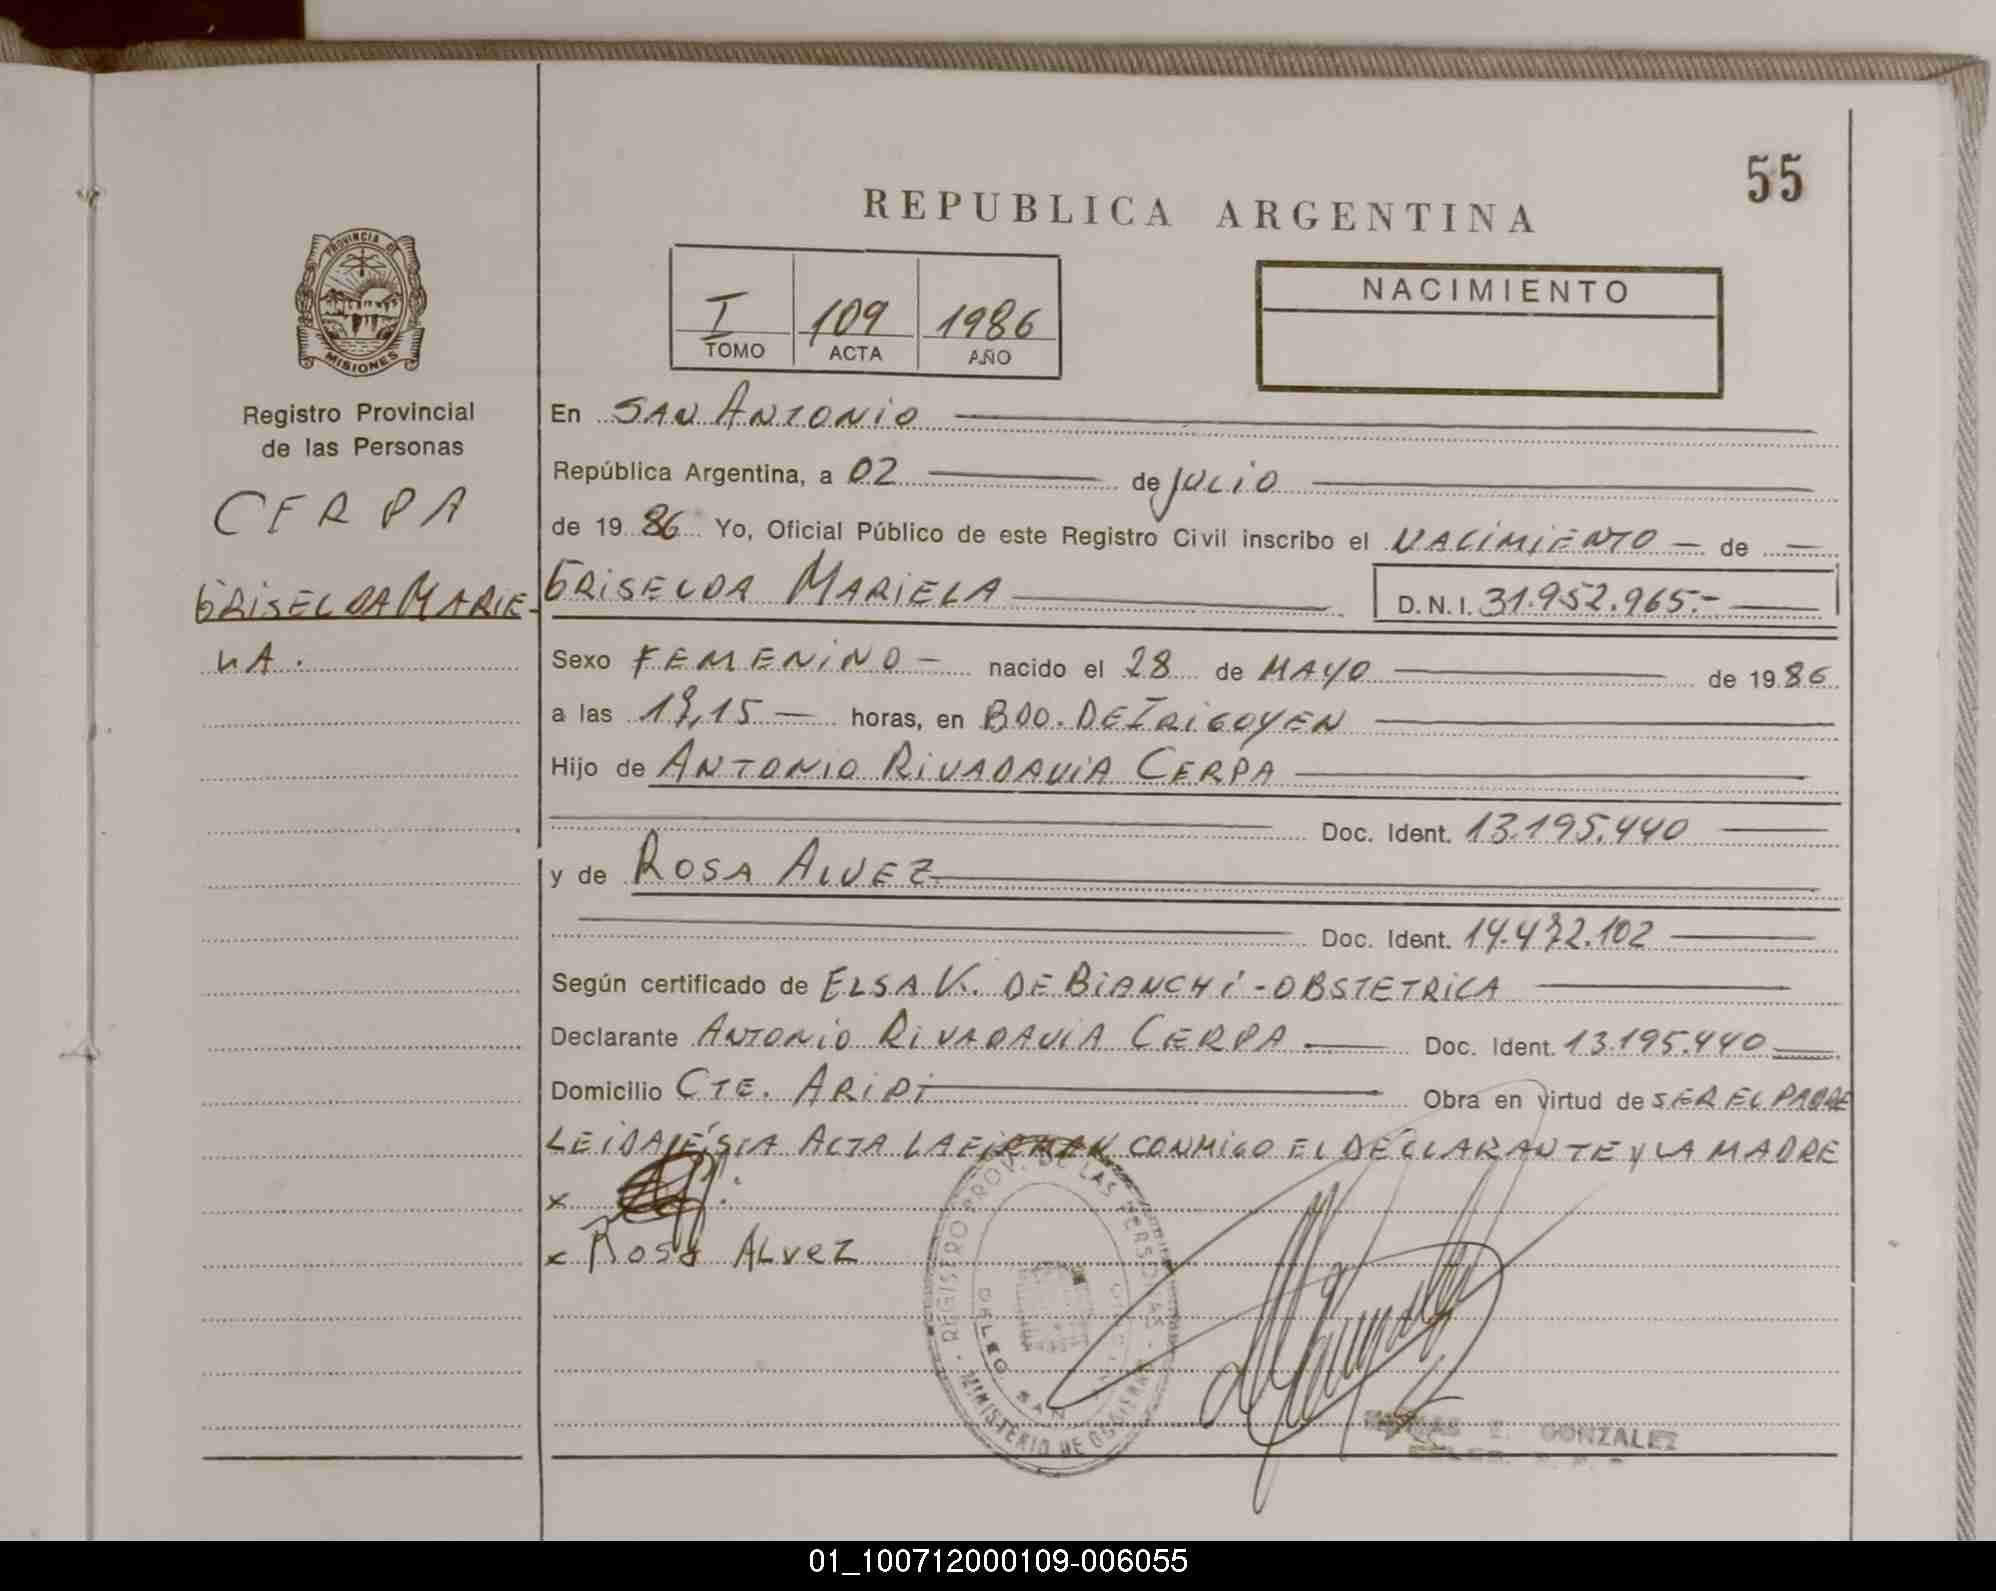 55
REPUBLICA ARGENTINA
PROVINCIA DE
MISIONES
I 109 1986
TOMO ACTA AÑO
NACIMIENTO
Registro Provincial
de las Personas
CERPA
GRISELDA MARIE-
LA.
En SAN ANTONIO
República Argentina, a 02 de JULIO
de 1986 Yo, Oficial Público de este Registro Civil inscribo el NACIMIENTO - de -
GRISELDA MARIELA D.N.I. 31.952.965.-
Sexo FEMENINO - nacido el 28 de MAYO de 1986
a las horas, en BDO. DE IRIGOYEN
Hijo de ANTONIO RIVADAVIA CERPA
Doc. Ident. 13.195.440
y de ROSA ALVEZ
Doc. Ident. 14.472.102
Según certificado de ELSA V. DE BIANCHI - OBSTETRICA
Declarante ANTONIO RIVADAVIA CERPA. Doc. Ident. 13.195.440
Domicilio CTE. ARIDI Obra en virtud de SER EL PADRE
LEIDA ÉSTA ACTA LA FIRMAN CONMIGO EL DECLARANTE Y LA MADRE
x
x Rosa ALveZ
REGISTRO PROV. DE LAS PERSONAS
MINISTERIO DE GOBIERNO
DELEG. SAN
E. GONZALEZ
01_100712000109-006055